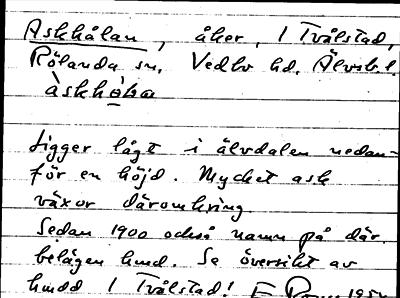 Askhålan, åker, 1 Tvålstad,
Rölanda sn, Vedbo hd, Älvsb.l.
àskhåɷa
Ligger lågt i älvdalen nedan-
för en höjd. Mycket ask
växer däromkring.
Sedan 1900 också namn på där
belägen hmd. Se översikt av
hmdd 1 Tvålstad!